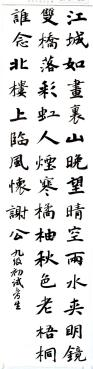 江城如畫裏山晚望晴空兩水夾明鏡
雙橋落彩虹人煙寒橘柚秋色老梧桐
誰念北樓上臨風懷謝公
初試